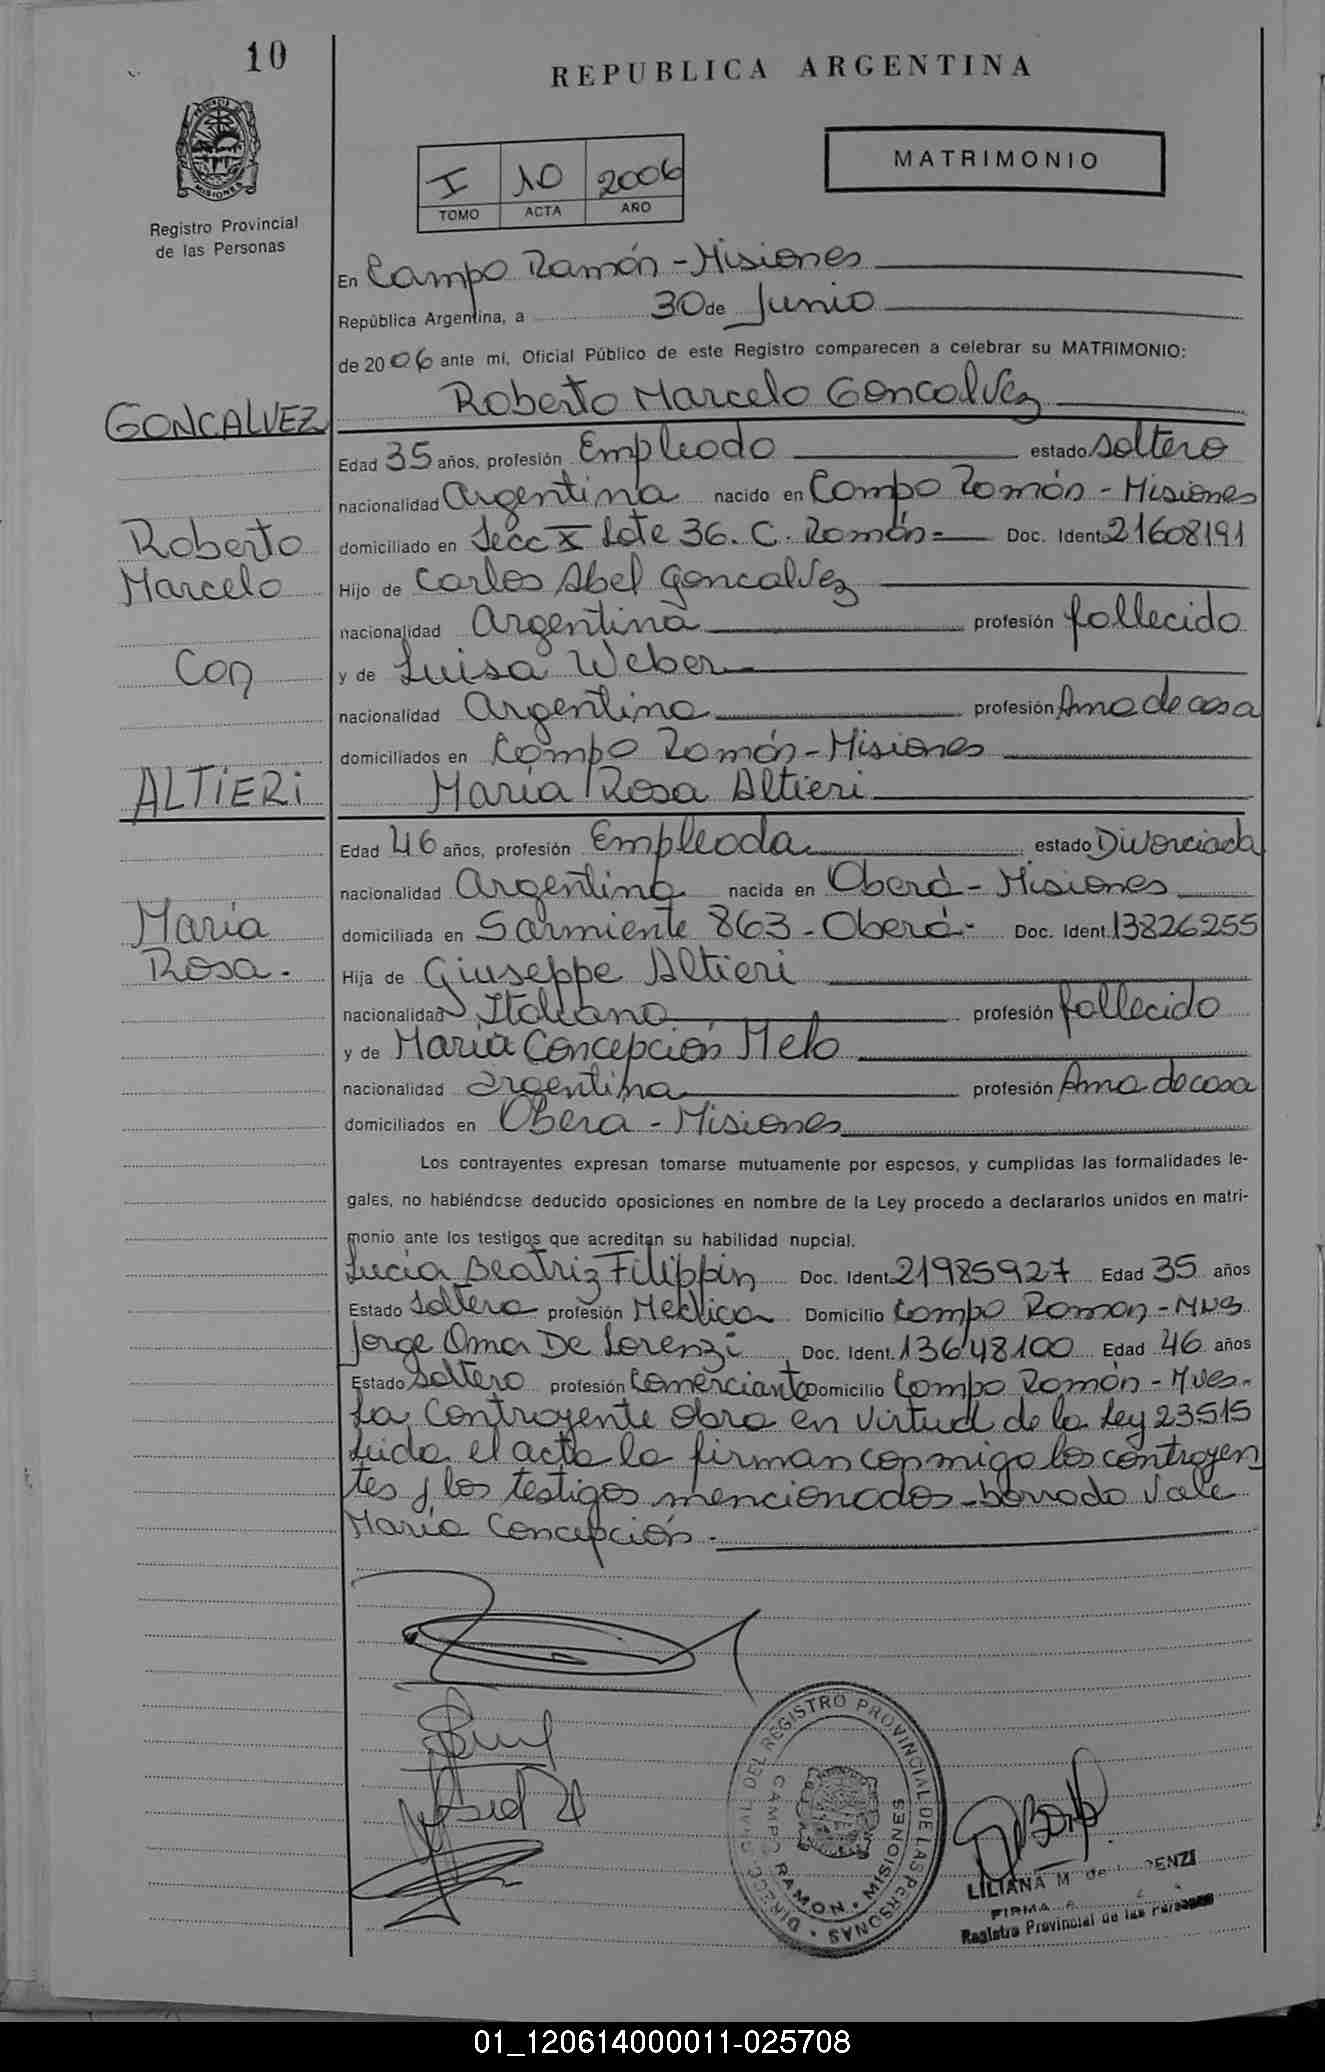 10
REPUBLICA ARGENTINA
MISIONES
Registro Provincial
de las Personas
I 10 2006
TOMO ACTA AÑO
MATRIMONIO
En Campo Ramón - Misiones
República Argentina, a 30 de Junio
de 2006 ante mí, Oficial Público de este Registro comparecen a celebrar su MATRIMONIO:
GONCALVEZ
Roberto
Marcelo
Con
ALTIERI
María
Rosa.-
Roberto Marcelo Goncalvez
Edad 35 años, profesión Empleado estado soltero
nacionalidad Argentina nacido en Campo Ramón - Misiones
domiciliado en Secc X Lote 36. C. Ramón- Doc. Ident. 21608191
Hijo de Carlos Abel Goncalvez
nacionalidad Argentina profesión fallecido
y de Luisa Weber
nacionalidad Argentina profesión Ama de casa
domiciliados en Campo Ramón - Misiones
María Rosa Altieri
Edad 46 años, profesión Empleada estado Divorciada
nacionalidad Argentina nacida en Oberá - Misiones
domiciliada en Sarmiento 863 - Oberá- Doc. Ident. 13826255
Hija de Giuseppe Altieri
nacionalidad Italiana profesión fallecido
y de María Concepción Melo
nacionalidad argentina profesión Ama de casa
domiciliados en Obera - Misiones
Los contrayentes expresan tomarse mutuamente por esposos, y cumplidas las formalidades le-
gales, no habiéndose deducido oposiciones en nombre de la Ley procedo a declararlos unidos en matri-
monio ante los testigos que acreditan su habilidad nupcial.
Lucía Beatriz Filippin Doc. Ident. 21985927 Edad 35 años
Estado Soltera profesión Medica Domicilio Campo Ramon -
Jorge Omar De Lorenzi Doc. Ident. 13648100 Edad 46 años
Estado Soltero profesión Comerciante Domicilio Campo Ramón - Mnes.-
La Contrayente obra en virtud de la Ley 23515
Leida el acta la firman conmigo los contrayen
tes y los testigos mencionados - borrado vale
María Concepción.-
DIRECC. GRAL. DEL REGISTRO PROVINCIAL DE LAS PERSONAS
CAMPO RAMON • MISIONES
LILIANA M de ENZI
FIRMA
Registro Provincial de las Personas
01_120614000011-025708